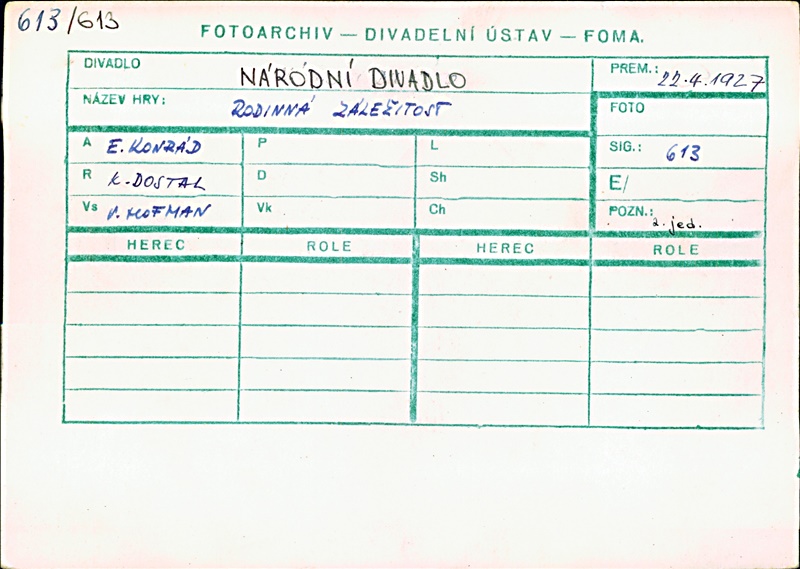 613/613
FOTOARCHIV — DIVADELNÍ ÚSTAV — FOMA.
DIVADLO NÁRODNÍ DIVADLO
PREM.: 22.4.1927
NÁZEV HRY: RODINNÁ ZÁLEŽITOST
FOTO
A E. KONRÁD P L
SIG.: 613
R K. DOSTAL D Sh
E/
Vs V. HOFMAN Vk Ch
POZN.: 2. jed.
HEREC ROLE HEREC ROLE